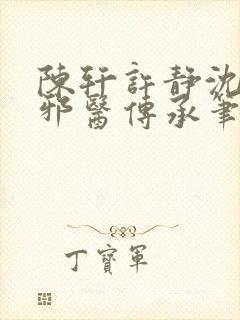 陳軒許靜沈
邪醫傳承筆
丁寶軍